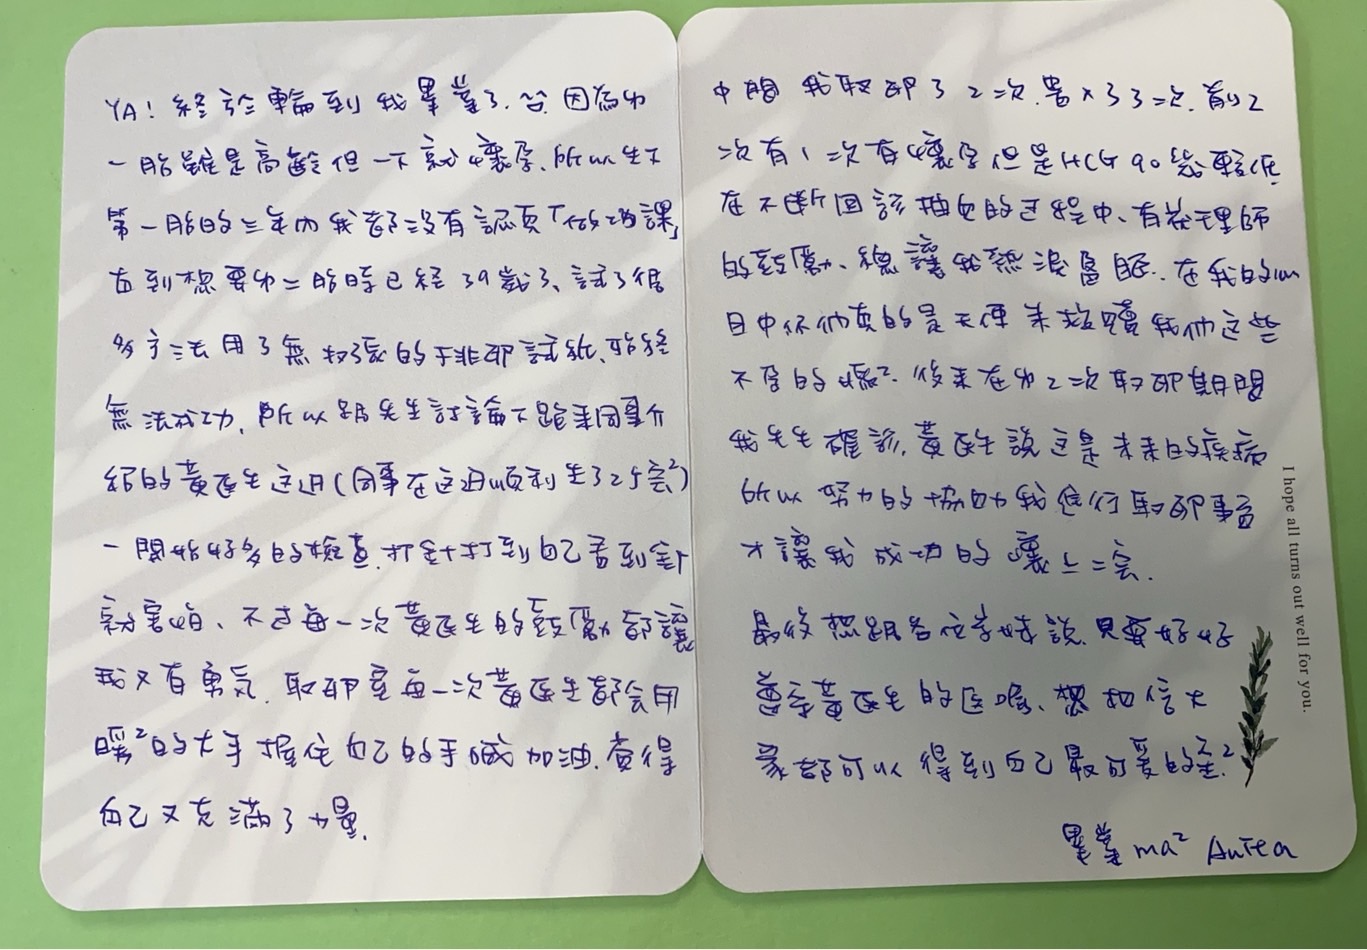 YA! 終於輪到我畢業了. 因為第
一胎雖是高齡但一下就懷孕. 所以生下
第一胎的三年內我都沒有認真「做功課」
直到想要第二胎時已經39歲了、試了很
多方法用了無數張的排卵試紙、始終
無法成功, 所以跟先生討論下跑來同事介
紹的黃醫生這邊(同事在這邊順利生了2個寶²)
一開始好多的檢查. 什至打針打到自己看到針
就害怕、不過每一次黃醫生的鼓勵都讓
我又有勇氣. 取卵室每一次黃醫生都會用
暖²的大手握住自己的手喊加油. 覺得
自己又充滿了力量.
中間我取卵了2次. 植入了3次. 前2
次有1次有懷孕但是HCG 90幾較低
在不斷回診抽血的過程中、有護理師
的鼓勵、總讓我熱淚盈眶. 在我的心
目中你們真的是天使來拯救我們這些
不孕的媽². 後來在第2次取卵期間
我先生確診, 黃醫生說這是未來的疾病
所以努力的協助我進行取卵事宜
才讓我成功的懷上二寶.
最後想跟各位學妹說. 只要好好
遵守黃醫生的醫囑、想相信大
家都可以得到自己最可愛的寶²
畢業ma² Autea
I hope all turns out well for you.